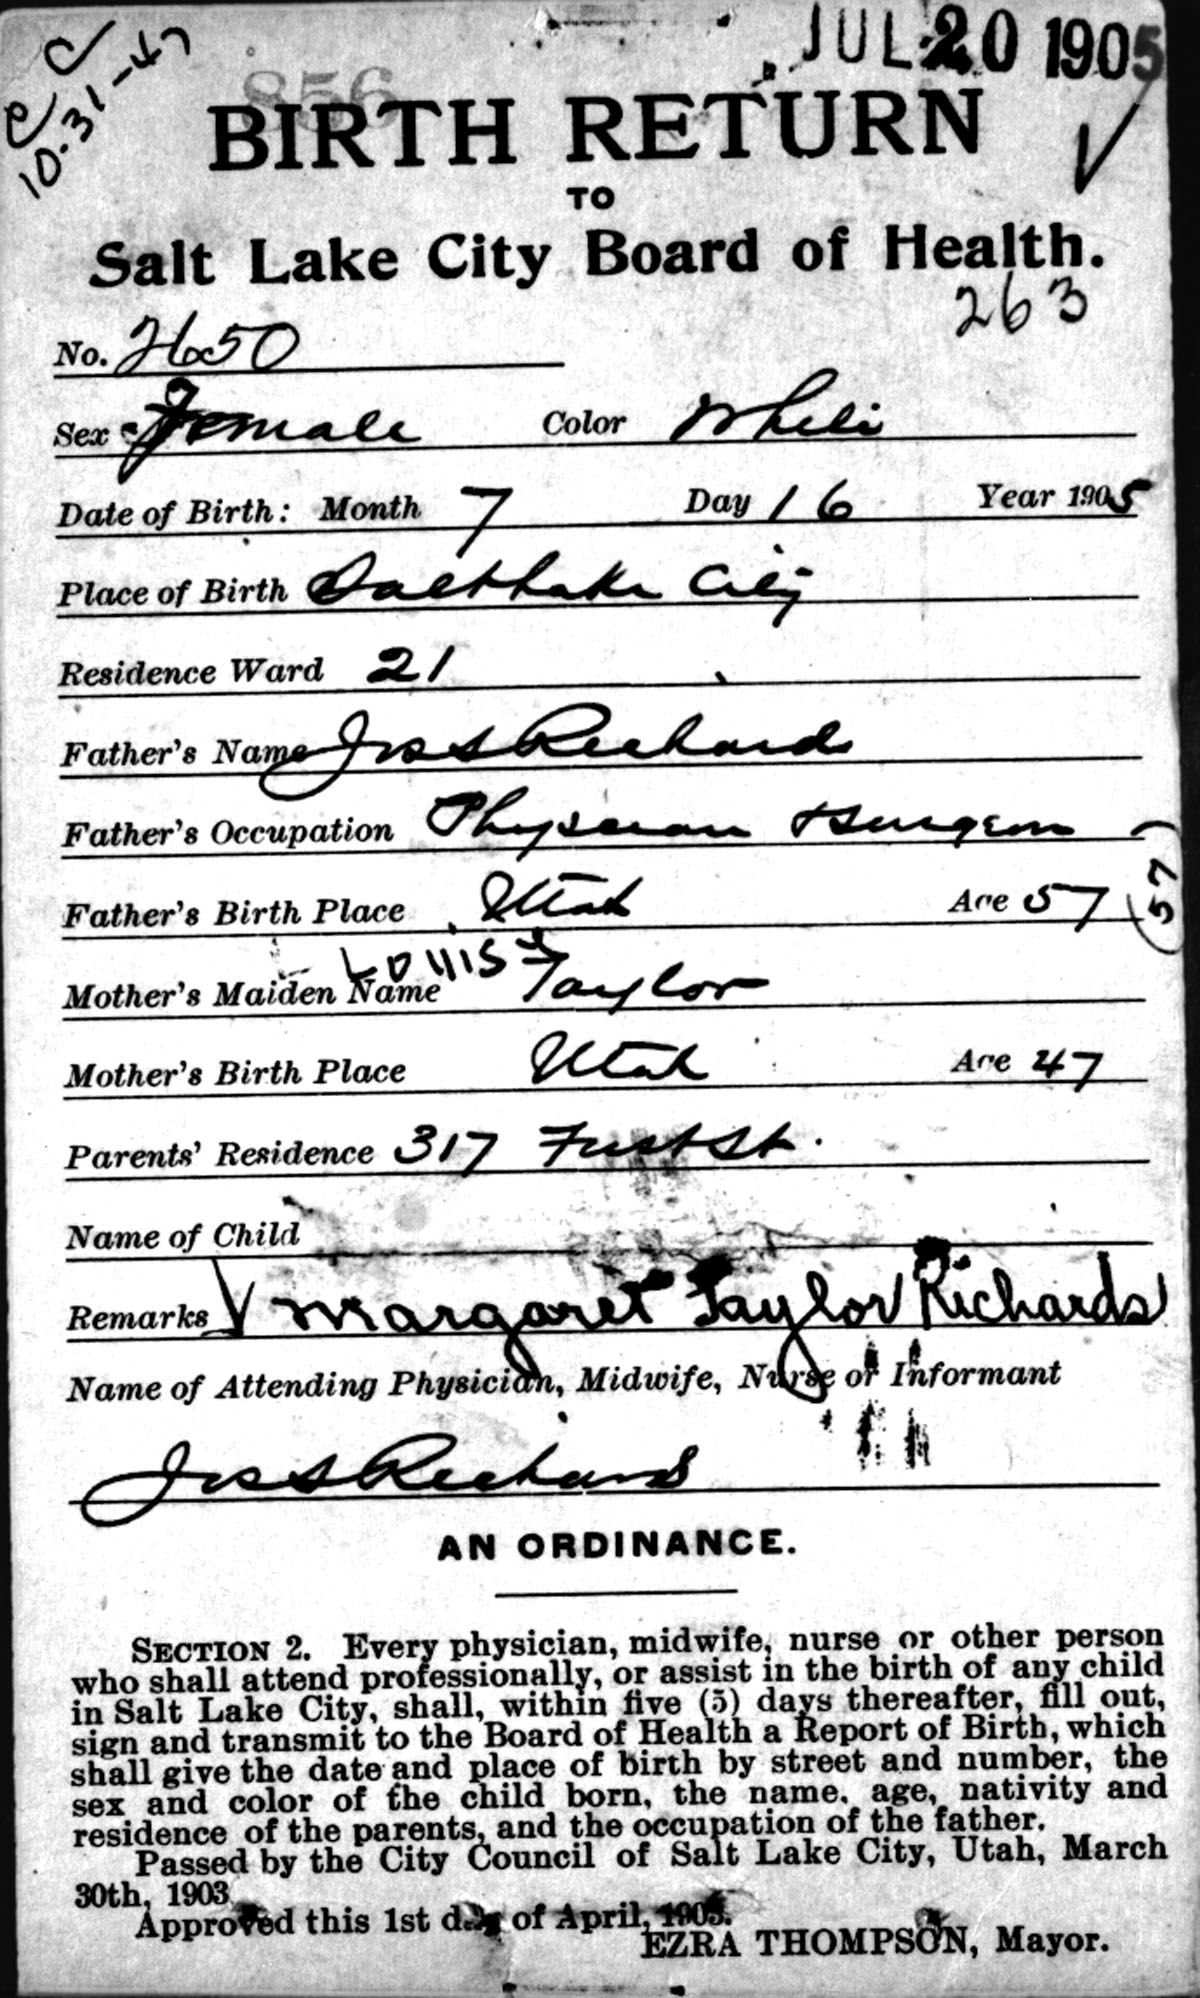 JUL 20 1905
C C
10-31-47
856
BIRTH RETURN
TO
Salt Lake City Board of Health.
263
No. 2650
Sex Female Color White
Date of Birth: Month 7 Day 16 Year 1905
Place of Birth Salt Lake City
Residence Ward 21
Father's Name Jos S Richards
Father's Occupation Physician & Surgeon
Father's Birth Place Utah Age 57
(57)
Mother's Maiden Name Louise Taylor
Mother's Birth Place Utah Age 47
Parents' Residence 317 First St.
Name of Child
Remarks Margaret Taylor Richards
Name of Attending Physician, Midwife, Nurse or Informant
Jos S Richards
AN ORDINANCE.
SECTION 2. Every physician, midwife, nurse or other person
who shall attend professionally, or assist in the birth of any child
in Salt Lake City, shall, within five (5) days thereafter, fill out,
sign and transmit to the Board of Health a Report of Birth, which
shall give the date and place of birth by street and number, the
sex and color of the child born, the name, age, nativity and
residence of the parents, and the occupation of the father.
Passed by the City Council of Salt Lake City, Utah, March
30th, 1903
Approved this 1st day of April, 1903.
EZRA THOMPSON, Mayor.